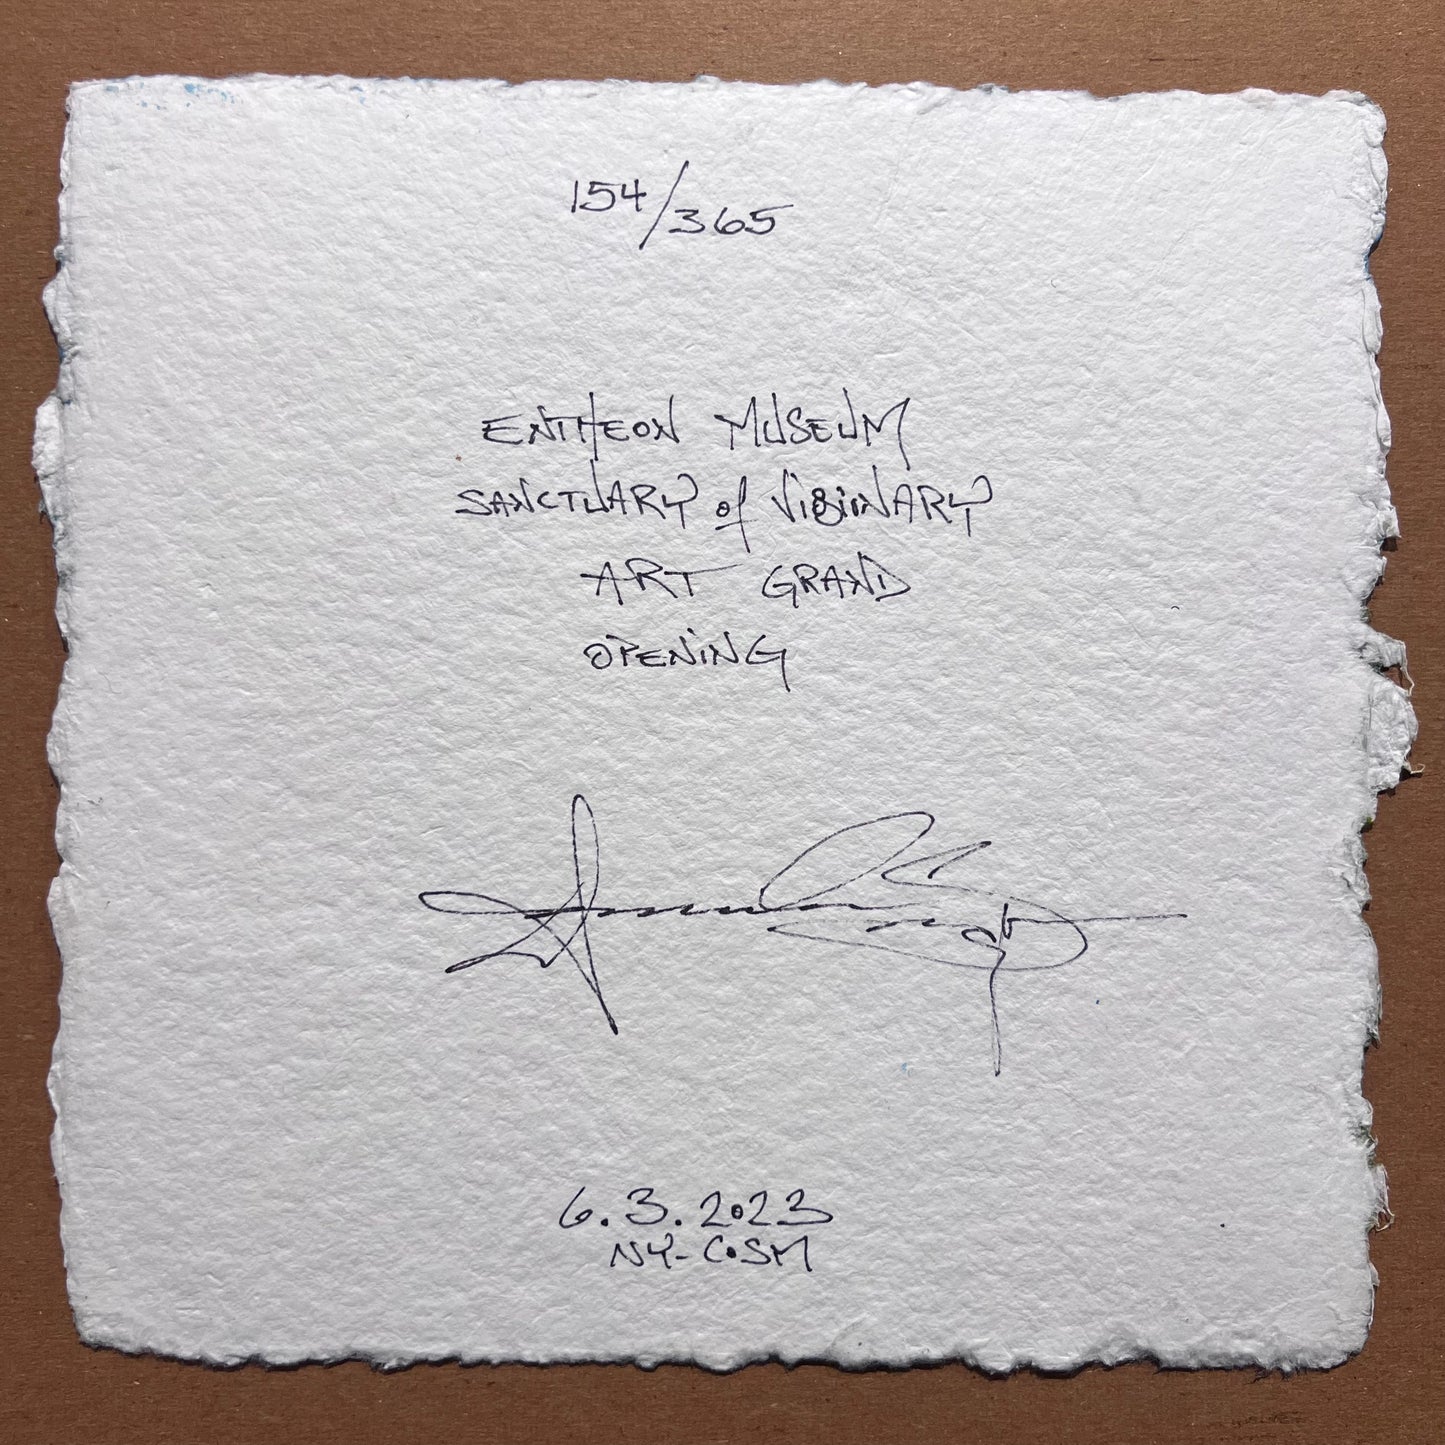 154/365
ENTHEON MUSEUM
SANCTUARY of VISIONARY
ART GRAND
OPENING
6.3.2023
NY-COSM